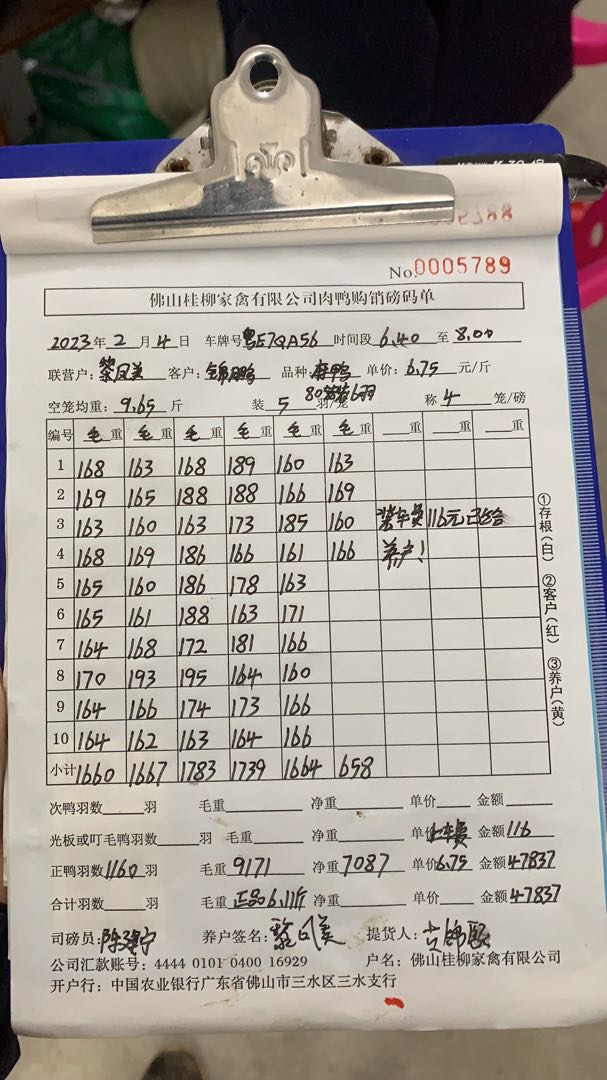 No.0005789
佛山桂柳家禽有限公司肉鸭购销磅码单
2023年2月4日 车牌号粤E7QA56 时间段6.40至8.00
联营户:黎凤美 客户:锦鹏 品种:麻鸭 单价:6.75元/斤
80装6羽
空笼均重:9.65斤 装5羽/笼 称4笼/磅
编号 毛重 毛重 毛重 毛重 毛重 毛重 重 重 重
1 168 163 168 189 160 163
2 169 165 188 188 166 169
3 163 160 163 173 185 160 装车员 116元 已给
4 168 169 186 166 161 166 养户!
5 165 160 186 178 163
6 165 161 188 163 171
7 164 168 172 181 166
8 170 193 195 164 160
9 164 166 174 173 166
10 164 162 163 164 166
小计 1660 1667 1783 1739 1664 658
①存根(白) ②客户(红) ③养户(黄)
次鸭羽数 羽 毛重 净重 单价 金额
光板或叮毛鸭羽数 羽 毛重 净重 单价 金额116
正鸭羽数1160羽 毛重9171 净重7087 单价6.75 金额47837
合计羽数 羽 毛重正品6.11斤 净重 单价 金额47837
司磅员: 养户签名:黎凤美 提货人:
公司汇款账号:4444 0101 0400 16929 户名:佛山桂柳家禽有限公司
开户行:中国农业银行广东省佛山市三水区三水支行